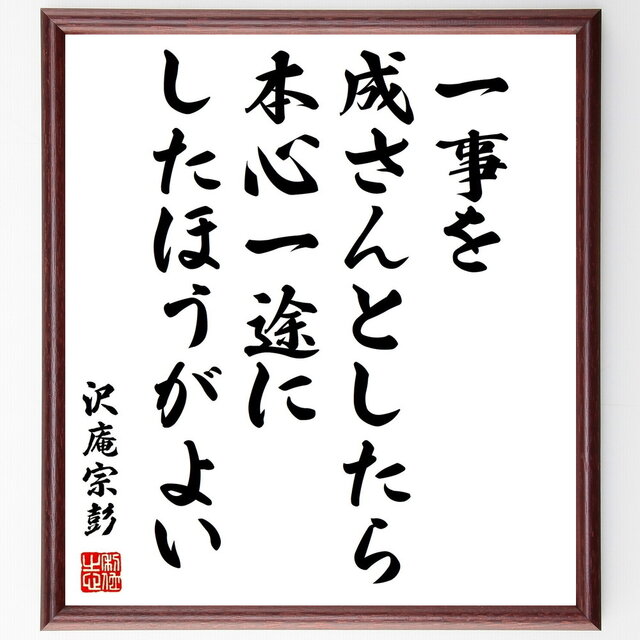 一事を
成さんとしたら
本心一途に
したほうがよい
沢庵宗彭